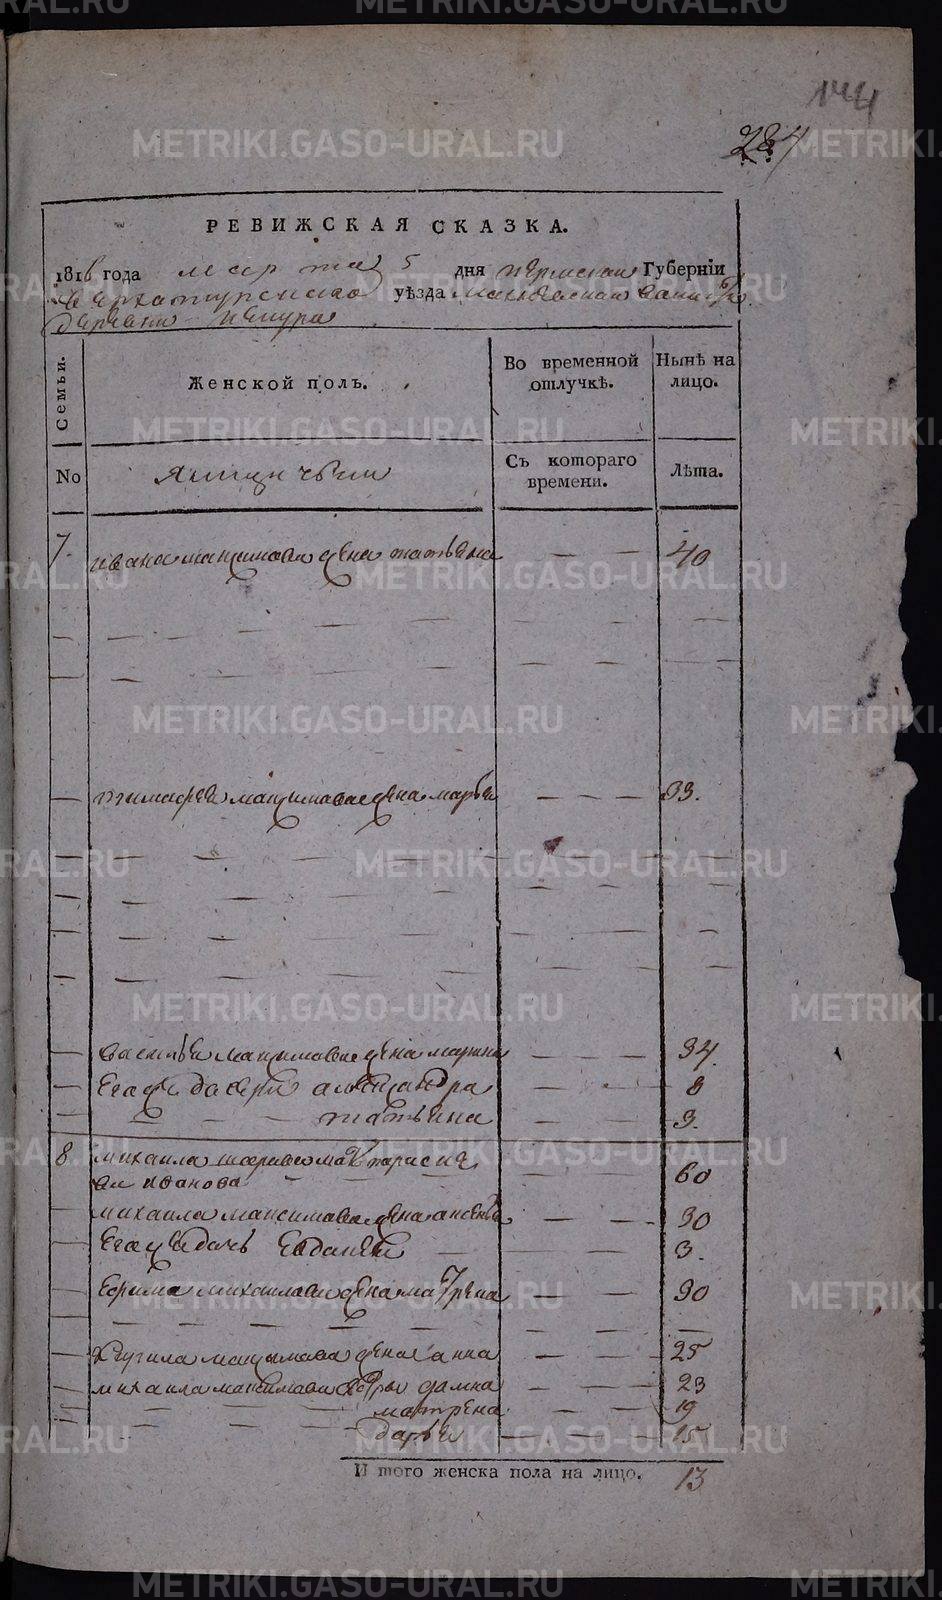 144
284
РЕВИЖСКАЯ СКАЗКА.
1816 года марта 5 дня пермской Губерніи
верхотурскаго уѣзда
деревни
Семьи.
Женской полъ.
Во временной отлучкѣ.
Нынѣ на лицо.
No
Ямщичьи
Съ котораго времени.
Лѣта.
7. ивана максимова жена татьяна — — 40
— тимофея максимова жена марья — — — 33.
— василья максимова жена марина — — — 34.
— Его же дочери александра — — — 8
— — — — татьяна — — — 3.
8 михаила
иванова — — — 60
— михаила максимова жена аксенья — — 30
— Его же дочь Евдокея — — — 3.
— Ефима михаилова жена матрена — — 30
— максимова жена анна — — — 25
— михаила максимова дочери домна — — — 23
— — — матрена — — 19
— — — дарья — — — 15
И того женска пола на лицо. 13
METRIKI.GASO-URAL.RU